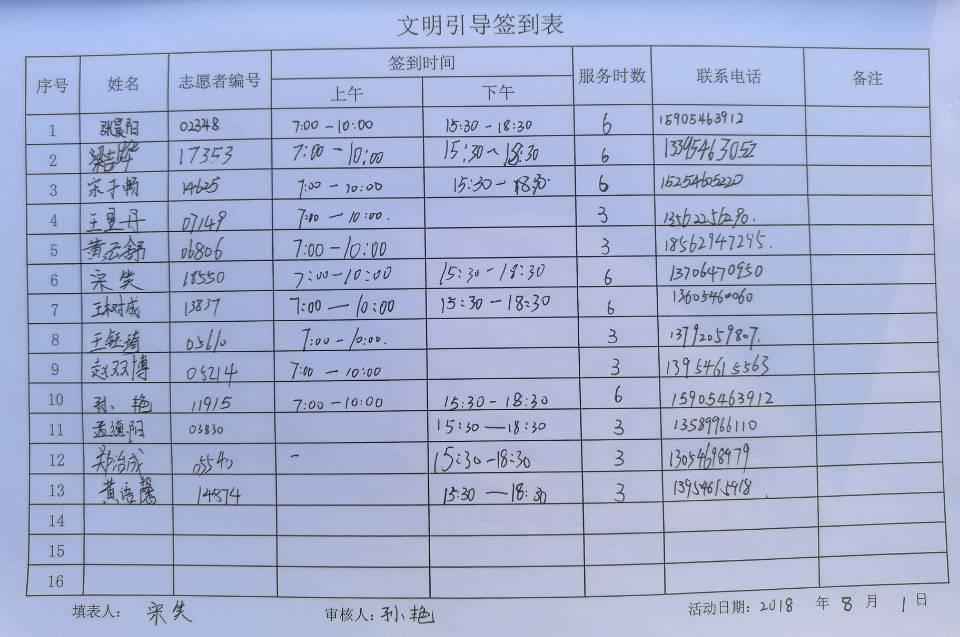 文明引导签到表
序号 姓名 志愿者编号 签到时间 服务时数 联系电话 备注
上午 下午
1 张晨阳 02348 7:00-10:00 15:30-18:30 6 15905463912
2 17353 7:00-10:00 15:30~18:30 6
3 宋子畅 14625 7:00-10:00 15:30-18:30 6 15254605220
4 王昱丹 07149 7:00-10:00. 3 13562256290.
5 黄云舒 06806 7:00-10:00 3 18562947295.
6 宋笑 18550 7:00-10:00 15:30-18:30 6 13706470950
7 王树成 13837 7:00-10:00 15:30-18:30 6 13605460060
8 王钰琦 05610 7:00-10:00. 3 13792059807.
9 赵双博 05214 7:00-10:00 3 13954615563
10 孙艳 11915 7:00-10:00 15:30-18:30 6 15905463912
11 孟德阳 03830 15:30-18:30 3 13589966110
12 郑治成 05540 - 15:30-18:30 3 13054698479
13 黄语馨 14874 15:30-18:30 3 13954615918
14
15
16
填表人: 宋笑 审核人: 孙艳 活动日期: 2018 年 8 月 1 日